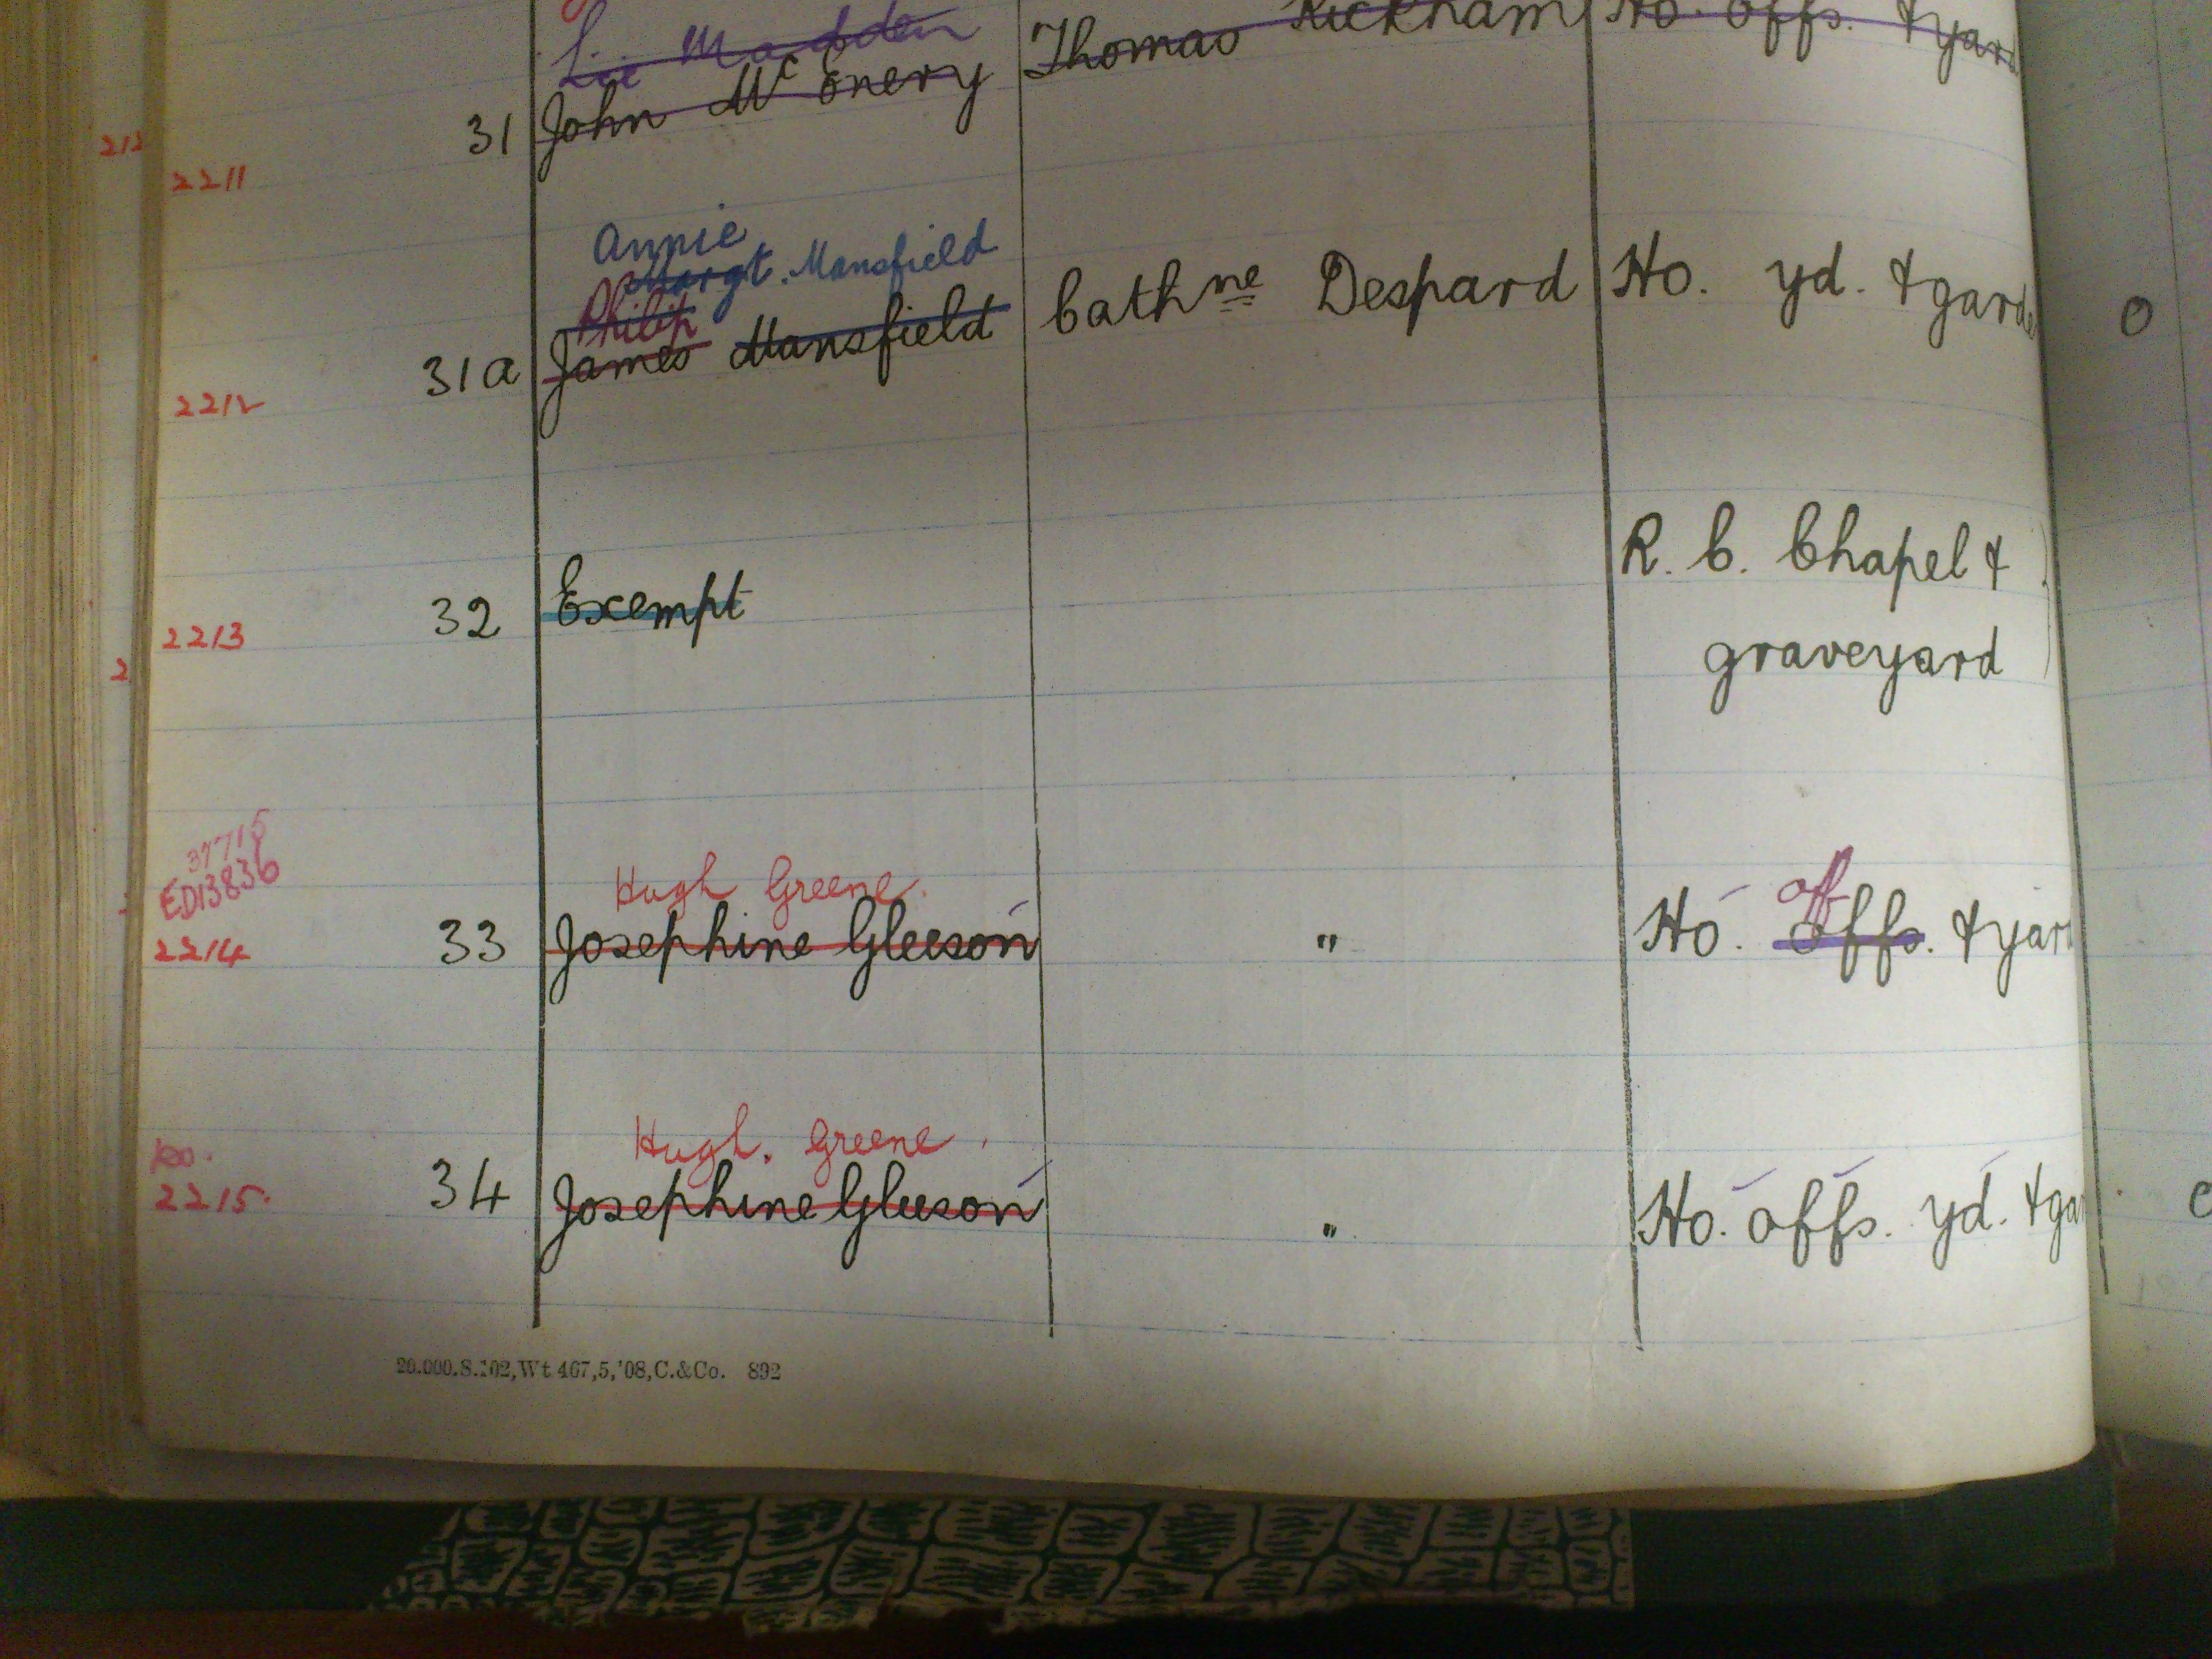 Madden Thomas Rickham Ho. Offs. & yard
31 John McEnery
212
2211
Annie
Margt. Mansfield
Philip
31a James Mansfield Cathne Despard Ho. yd. & garde
2212
R. C. Chapel &
32 Exempt
graveyard
2213
2
37715
ED13836
Hugh Greene. off
33 Josephine Gleeson " Ho. Offs. & yard
2214
Hugh. Greene.
34 Josephine Gleeson " Ho. offs. yd. & gar
2215.
20.000.S.102,Wt 467,5,'08,C.&Co. 892